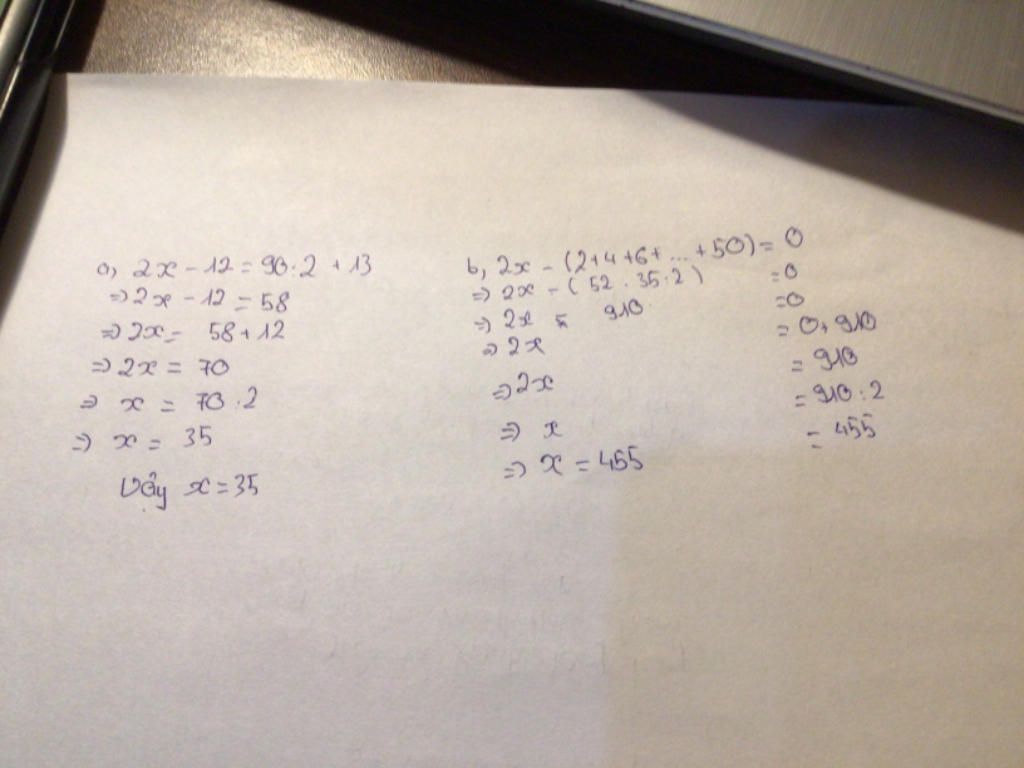 a, 2x - 12 = 90 : 2 + 13
=> 2x - 12 = 58
=> 2x = 58 + 12
=> 2x = 70
=> x = 70 : 2
=> x = 35
Vậy x = 35
b, 2x - (2+4+6+...+50) = 0
=> 2x - (52 . 35 : 2) = 0
=> 2x - 910 = 0
=> 2x = 0 + 910
=> 2x = 910
=> x = 910 : 2
=> x = 455 = 455